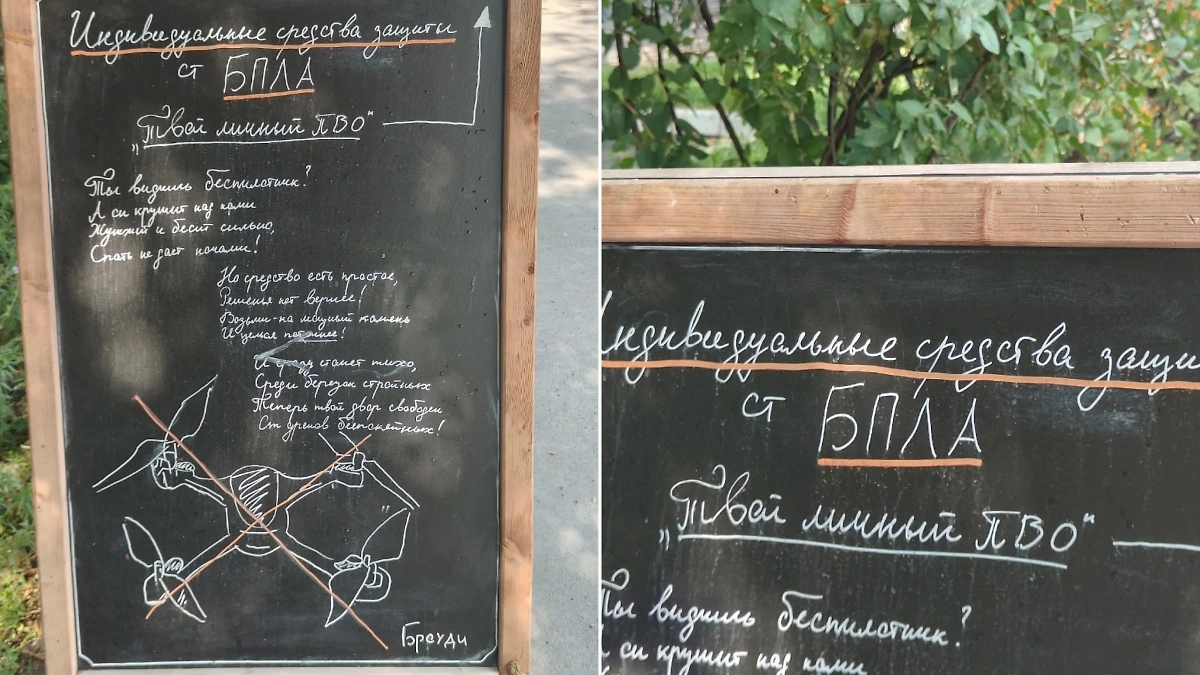 Индивидуальные средства защиты
от БПЛА
„Твой личный ПВО"
Ты видишь беспилотник?
А он кружит над нами
Жужжит и бесит сильно,
Спать не дает ночами!
Но средство есть простое,
Решенья нет вернее!
Возьми-ка мощный камень
И целься поточнее!
И сразу станет тихо,
Среди березок стройных
Теперь твой двор свободен
От дронов беспокойных!
Индивидуальные средства защи
от БПЛА
„Твой личный ПВО"
Ты видишь беспилотник?
А он кружит над нами